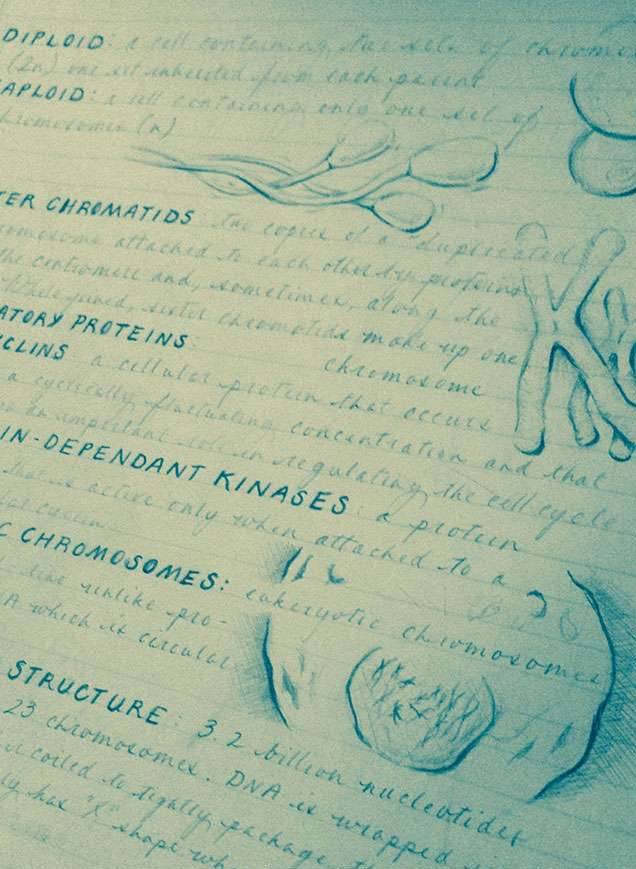 DIPLOID: a cell containing two sets of chromos
(2n) one set inherited from each parent
APLOID: a cell containing only one set of
chromosomes (n)
TER CHROMATIDS two copies of a duplicated
omosome attached to each other by proteins
the centromere and, sometimes, along the
While joined, sister chromatids make up one
chromosome
ATORY PROTEINS:
CLINS a cellular protein that occurs
a cyclically fluctuating concentration and that
an important role in regulating the cell cycle
IN-DEPENDANT KINASES: a protein
that is active only when attached to a
C CHROMOSOMES: eukaryotic chromosomes
unlike pro-
A which is circular
STRUCTURE: 3.2 billion nucleotides
23 chromosomes. DNA is wrapped
coiled to tightly package
has "X" shape wh